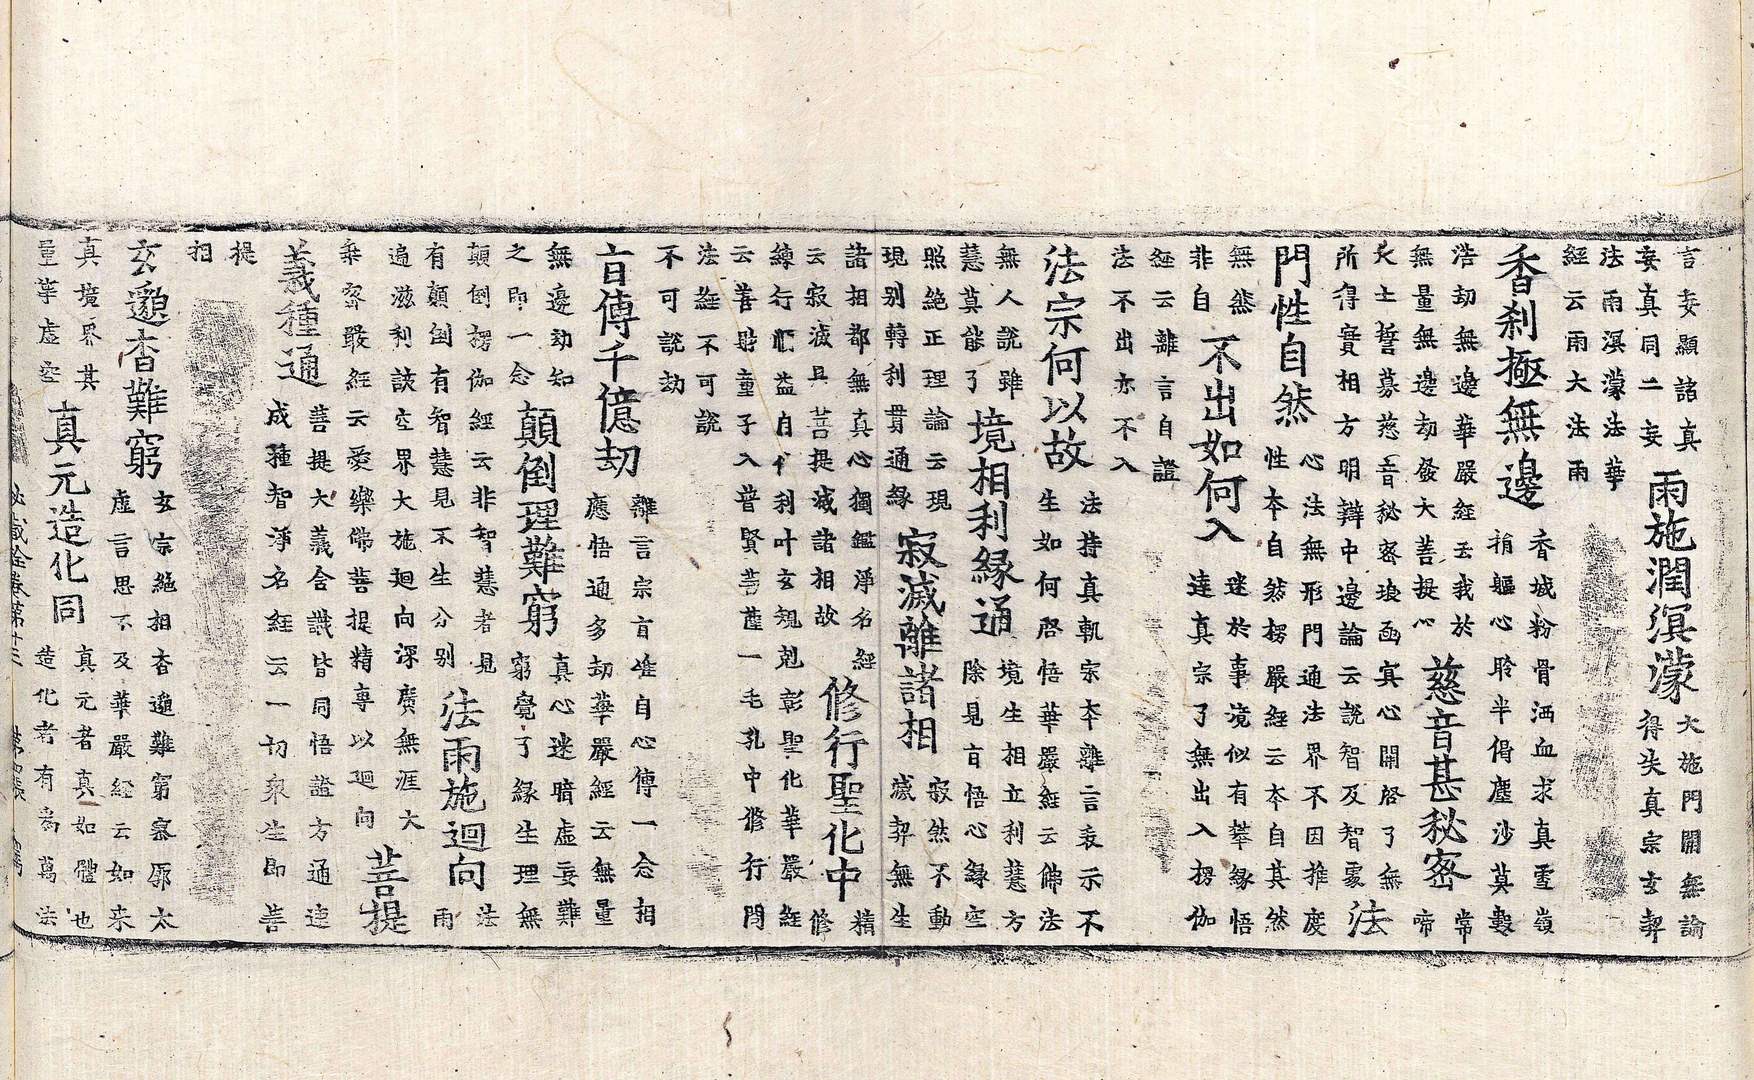 言妄顯諸真
妄真同二妄
雨施潤溟濛
大施門開無論
得失真宗玄契
法雨溟濛法華
經云雨大法雨
香刹極無邊
香城粉骨洒血求真雪嶺
捐軀心聆半偈塵沙莫數
浩劫無邊華嚴經云我於
無量無邊劫發大菩提心
慈音甚秘密
常
啼
大士誓募慈音秘密琅函寘心開啓了無
所得實相方明辯中邊論云說智及智處
法
門性自然
心法無形門通法界不因推度
性本自然楞嚴經云本自其然
無然
非自
不出如何入
迷於事境似有攀緣悟
達真宗了無出入楞伽
經云離言自證
法不出亦不入
法宗何以故
法持真軌宗本離言表示不
生如何啓悟華嚴經云佛法
無人說雖
慧莫能了
境相利緣通
境生相立利慧方
除見盲悟心緣空
照絕正理論云現
現別轉利貫通緣
寂滅離諸相
寂然不動
滅契無生
諸相都無真心獨鑑淨名經
云寂滅且菩提滅諸相故
修行聖化中
精
修
練行益自利叶玄規剋彰聖化華嚴經
云善財童子入普賢菩薩一毛孔中修行門
法經不可說
不可說劫
言傳千億劫
離言宗旨唯自心傳一念相
應悟通多劫華嚴經云無量
無邊劫知
之即一念
顛倒理難窮
真心迷暗虛妄難
窮覺了緣生理無
顛倒楞伽經云非智慧者見
有顛倒有智慧見不生分別
法雨施迴向
法
雨
遍滋利談空界大施迴向深廣無涯大
乘密嚴經云愛樂佛菩提精專以迴向
菩提
義種通
菩提大義含識皆同悟證方通速
成種智淨名經云一切衆生即菩
提
相
玄邈杳難窮
玄宗絕相杳邈難窮寥廓太
虛言思不及華嚴經云如來
真境界其
量等虛空
真元造化同
真元者真如體也
造化者有爲萬法
秘藏詮卷第十三 第四張